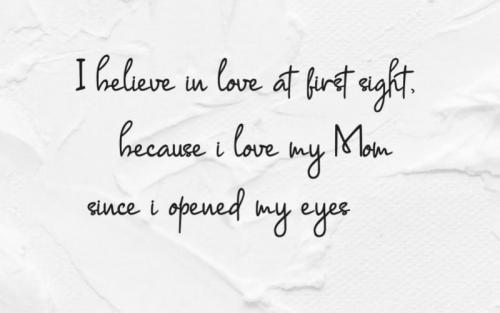 I believe in love at first sight,
because i love my Mom
since i opened my eyes